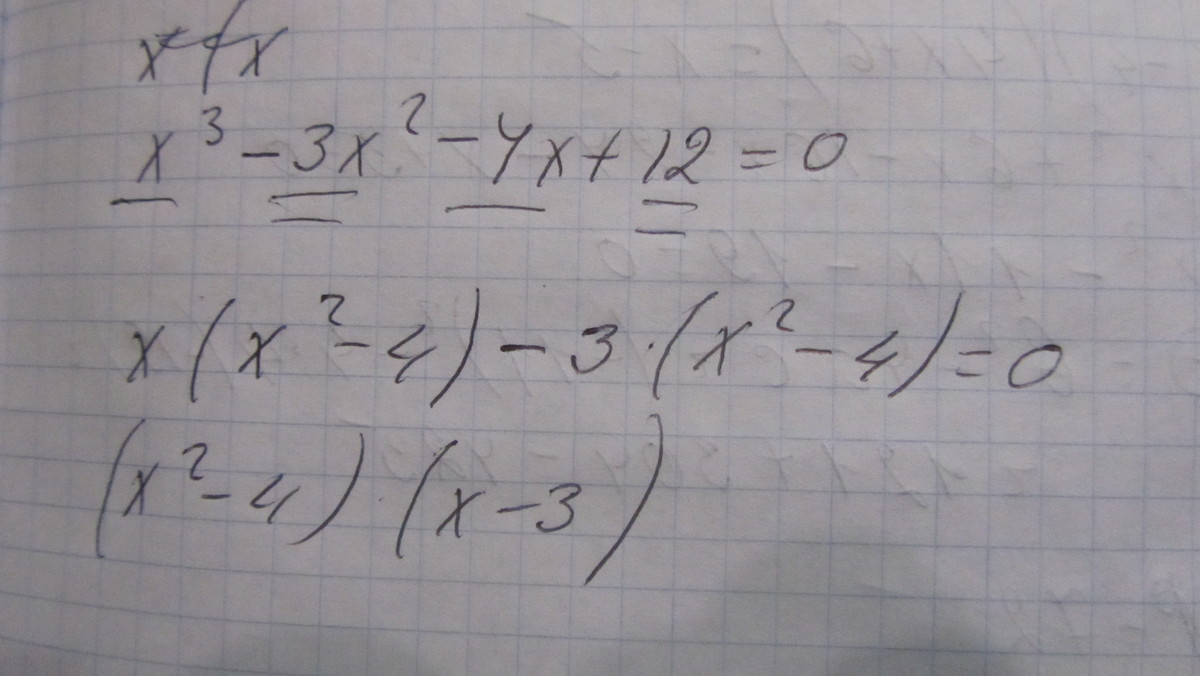 x³ - 3x² - 4x + 12 = 0
x(x² - 4) - 3·(x² - 4) = 0
(x² - 4)·(x - 3)